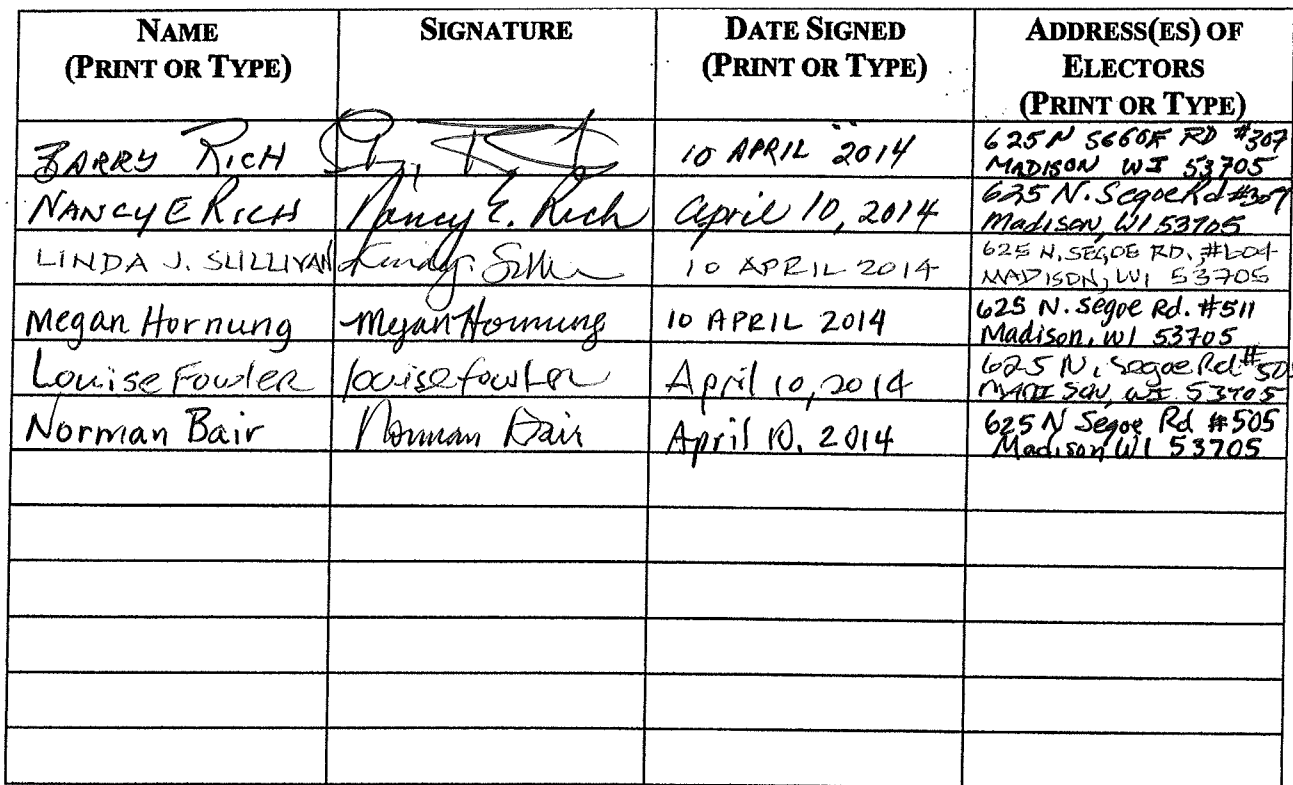 NAME
(PRINT OR TYPE)
SIGNATURE
DATE SIGNED
(PRINT OR TYPE)
ADDRESS(ES) OF
ELECTORS
(PRINT OR TYPE)
BARRY RICH
10 APRIL 2014
625 N SEGOE RD #307
MADISON WI 53705
NANCY E RICH
Nancy E. Rich
April 10, 2014
625 N. Segoe Rd #307
Madison, WI 53705
LINDA J. SULLIVAN
10 APRIL 2014
625 N. SEGOE RD. #604
MADISON, WI 53705
Megan Hornung
Megan Hornung
10 APRIL 2014
625 N. Segoe Rd. #511
Madison, WI 53705
Louise Fowler
Louise Fowler
April 10, 2014
625 N. Segoe Rd
MADISON, WI 53705
Norman Bair
Norman Bair
April 10, 2014
625 N Segoe Rd #505
Madison WI 53705